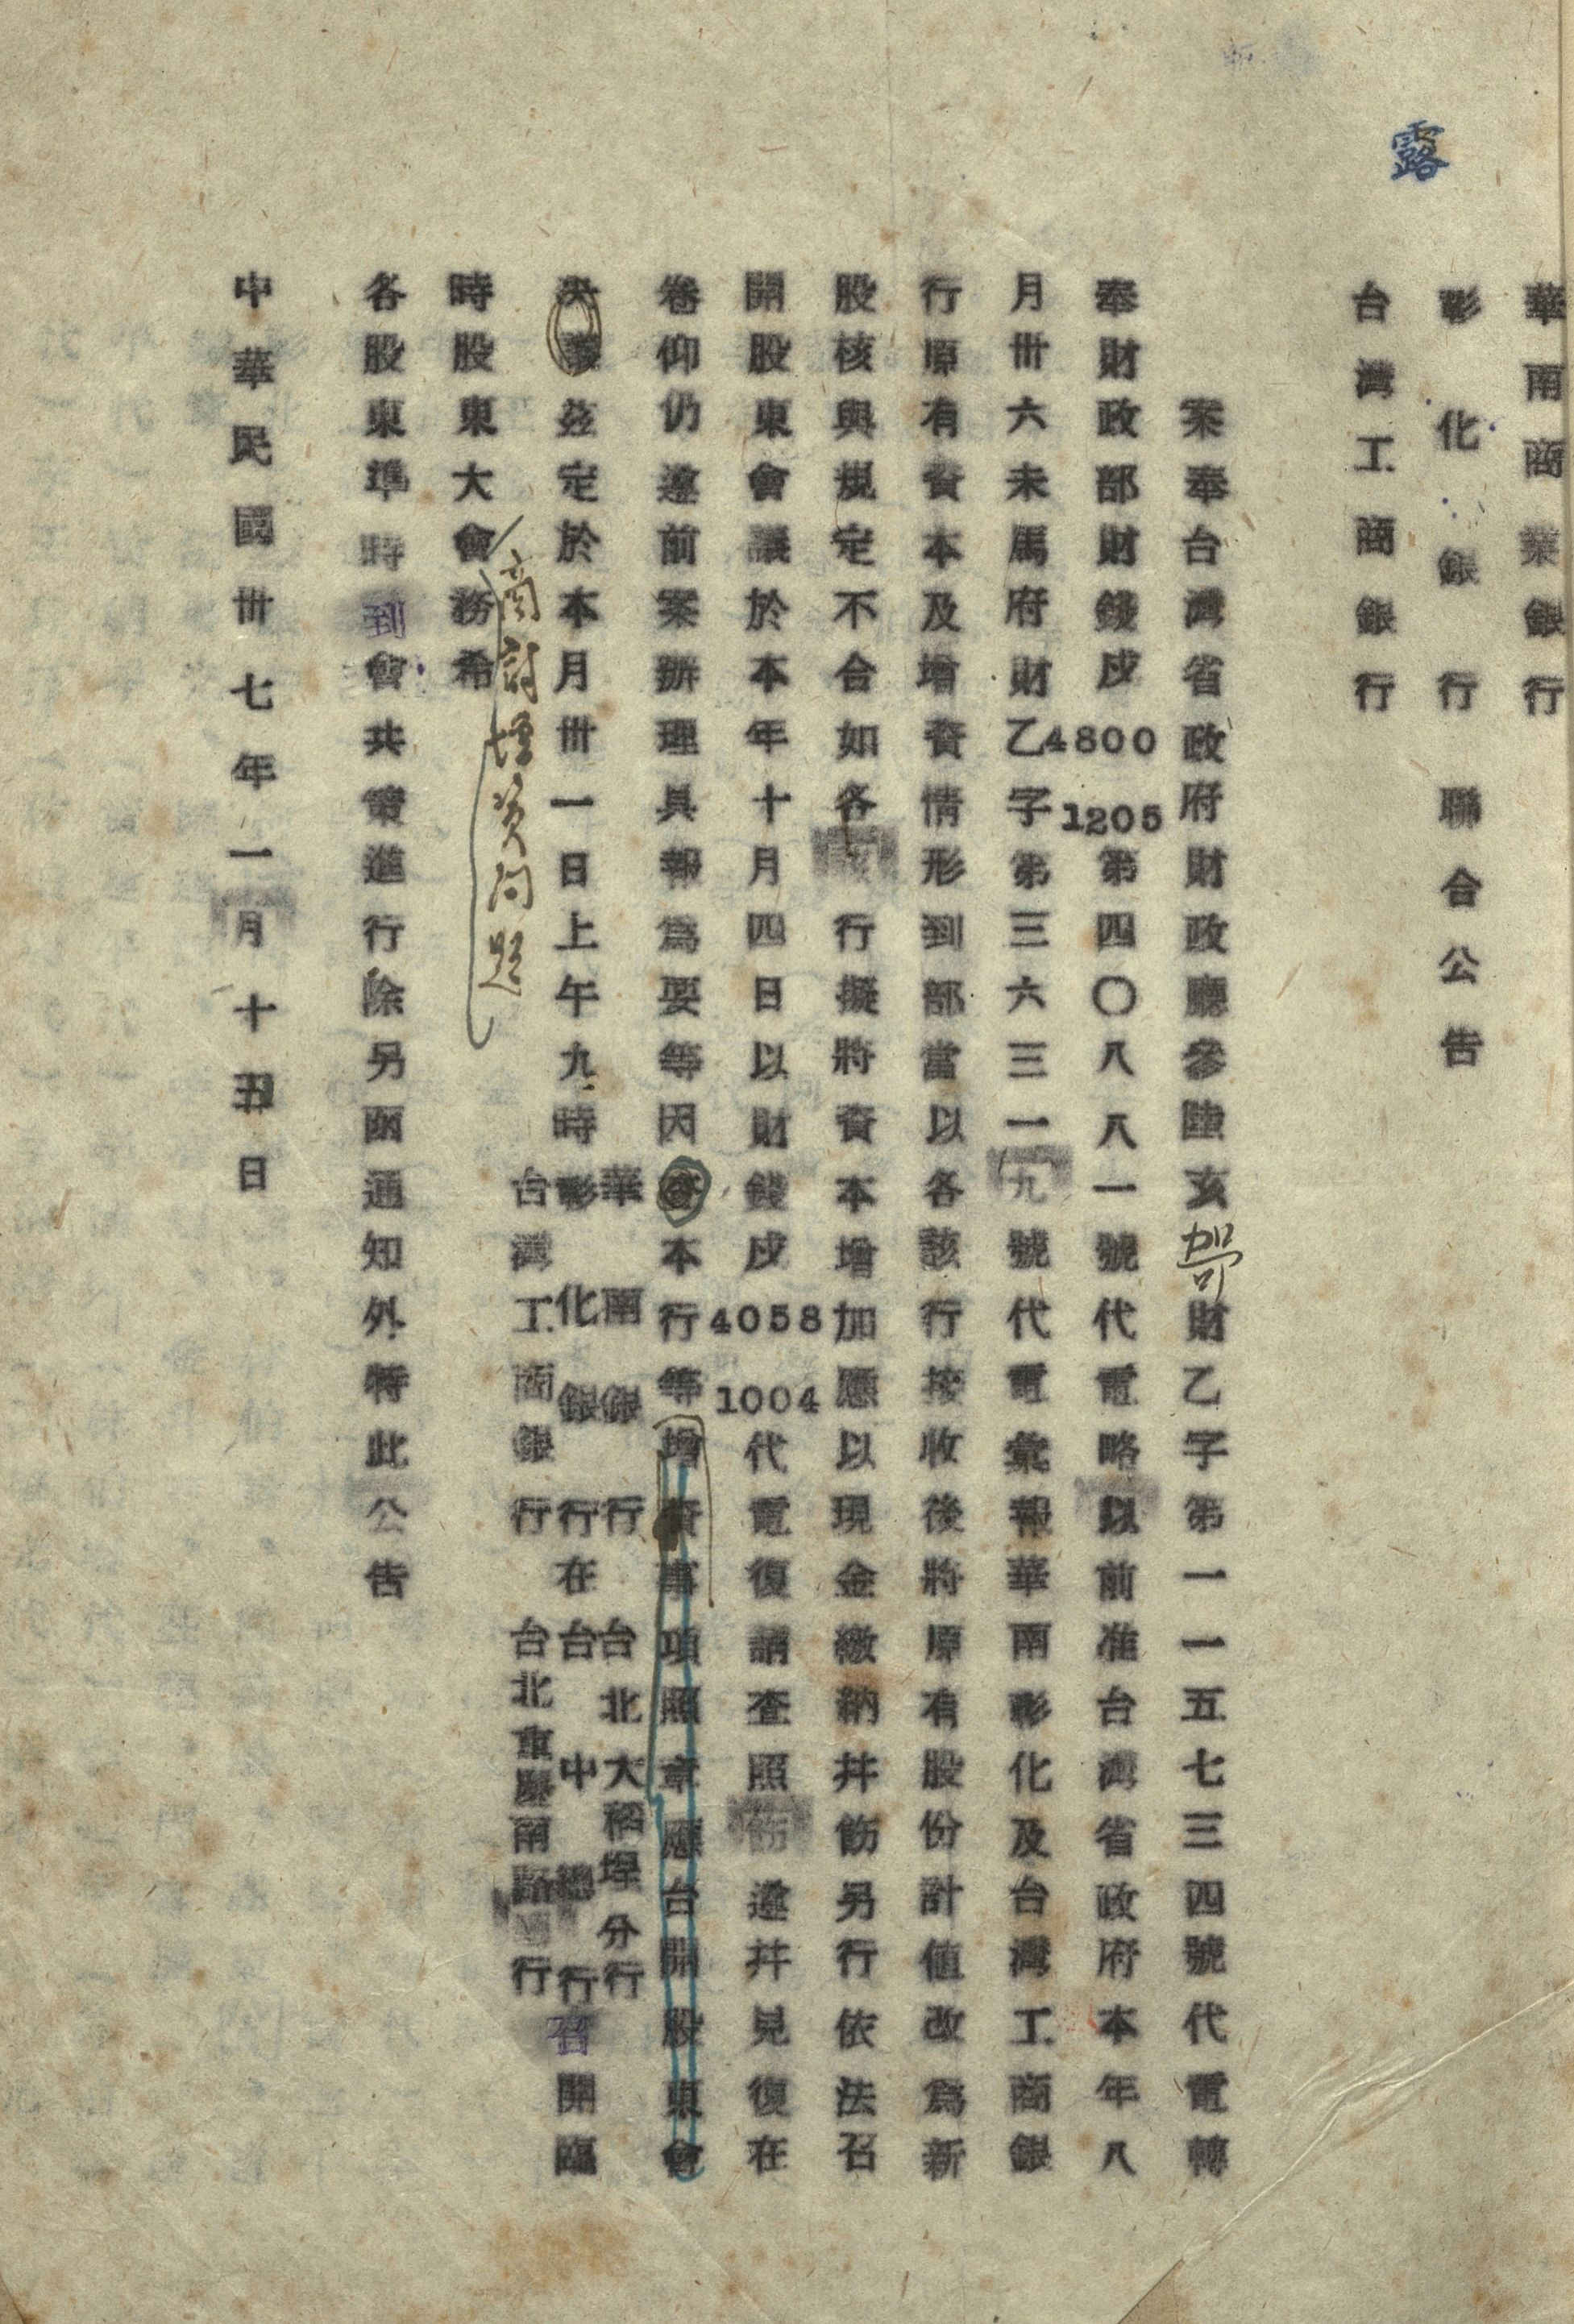 露
華南商業銀行
彰化銀行聯合公告
台灣工商銀行
案奉台灣省政府財政廳參陸玄財乙字第一一五七三四號代電轉
奉財政部財錢戍4800 1205第四〇八八一號代電略以前准台灣省政府本年八
月卅六未馬府財乙字第三六三一九號代電彙報華南彰化及台灣工商銀
行原有資本及增資情形到部當以各該行接收後將原有股份計值改為新
股核與規定不合如各行擬將資本增加應以現金繳納并飭另行依法召
開股東會議於本年十月四日以財錢戍4058 1004代電復請查照飭遵并見復在
卷仰仍遵前案辦理具報為要等因查本行等增資事項照章應台開股東會
決議茲定於本月卅一日上午九時
華南銀行台北大稻埕分行
彰化銀行在台中總行召開臨
台灣工商銀行台北重慶南路行
時股東大會務希
商討增資問題
各股東準時到會共策進行除另函通知外特此公告
中華民國卅七年一月十五日